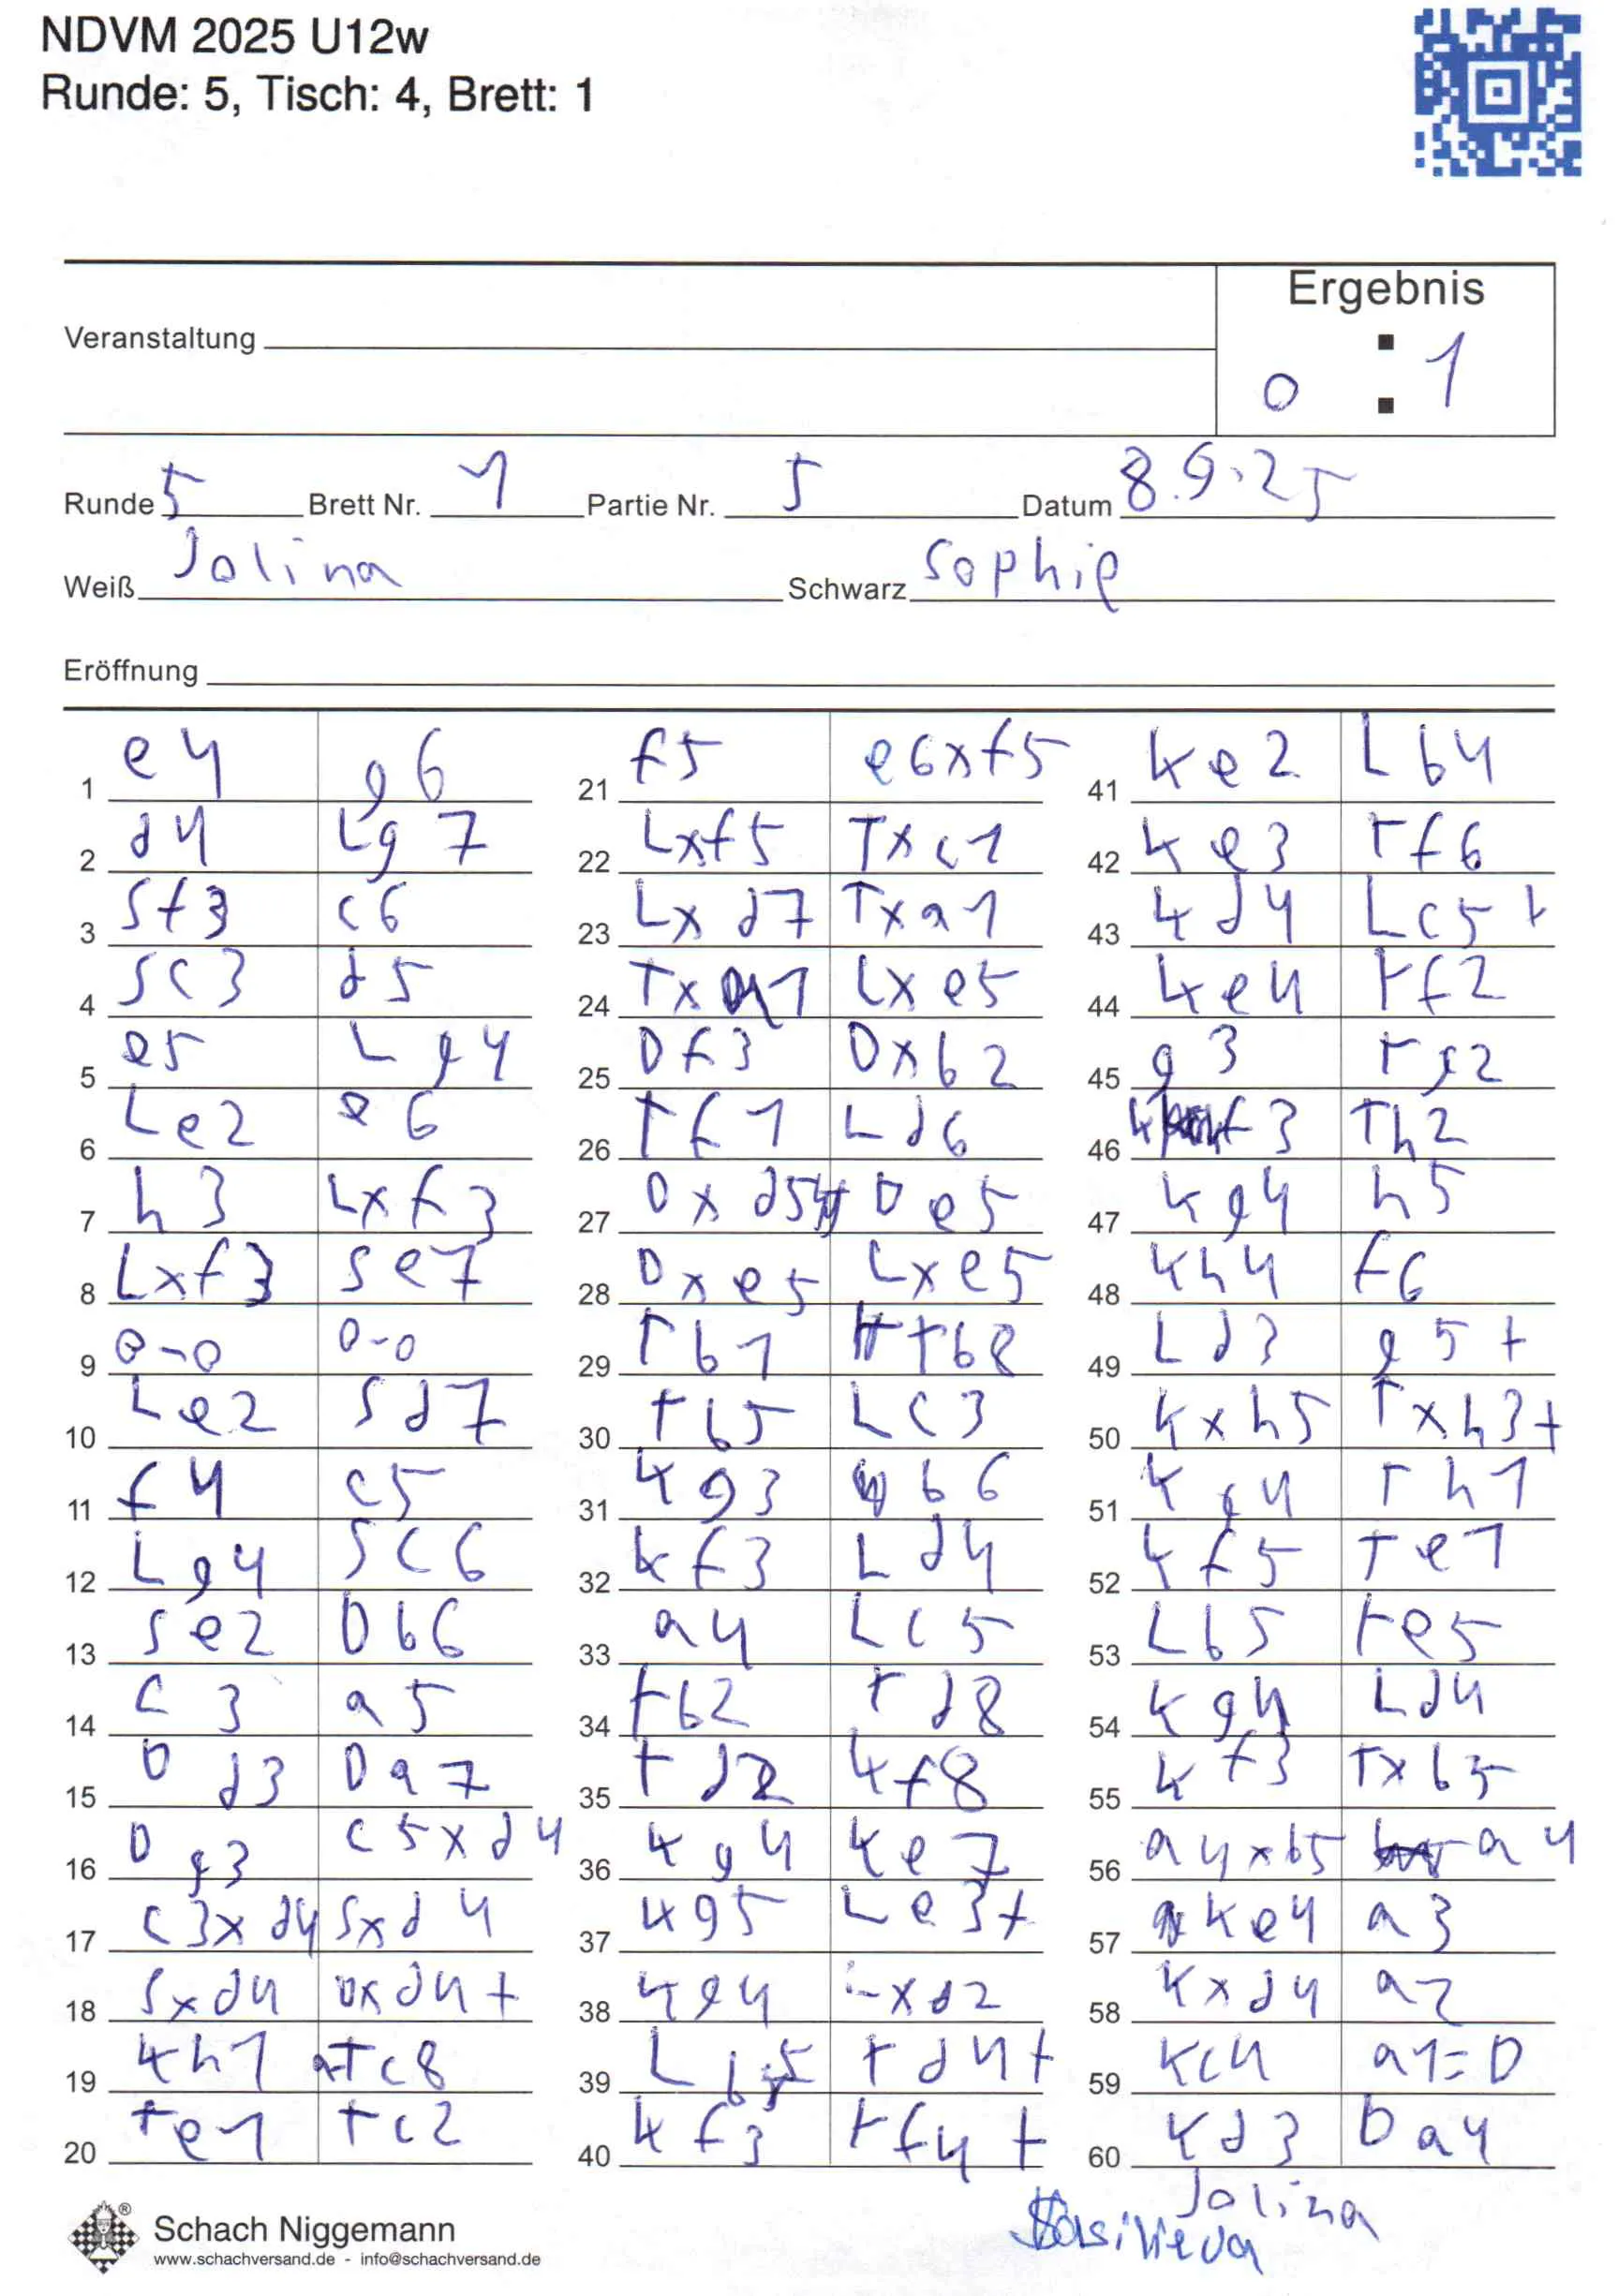 NDVM 2025 U12w
Runde: 5, Tisch: 4, Brett: 1
Ergebnis
Veranstaltung
0 : 1
Runde 5 Brett Nr. 1 Partie Nr. 5 Datum 8.9.25
Weiß Jolina Schwarz Sophie
Eröffnung
1 e4 g6
2 d4 Lg7
3 Sf3 c6
4 Sc3 d5
5 e5 Lg4
6 Le2 e6
7 h3 Lxf3
8 Lxf3 Se7
9 0-0 0-0
10 Le2 Sd7
11 f4 c5
12 Lg4 Sc6
13 Se2 Db6
14 c3 a5
15 Dd3 Da7
16 Dg3 c5xd4
17 c3xd4 Sxd4
18 Sxd4 Dxd4+
19 Kh1 Tc8
20 Te1 Tc2
21 f5 e6xf5
22 Lxf5 Txc1
23 Lxd7 Txa1
24 Txa1 Lxe5
25 Df3 Dxb2
26 Tf1 Ld6
27 Dxd5 De5
28 Dxe5 Lxe5
29 Tb1 Tb8
30 Tb5 Lc3
31 Kg3 b6
32 Kf3 Ld4
33 a4 Lc5
34 Tb2 Td8
35 Td2 Kf8
36 Kg4 Ke7
37 Kg5 Le3+
38 Kg4 Lxd2
39 Lb5 Td4+
40 Kf3 Tf4+
41 Ke2 Lb4
42 Ke3 Tf6
43 Kd4 Lc5+
44 Ke4 Tf2
45 g3 Tg2
46 Kf3 Th2
47 Kg4 h5
48 Kh4 f6
49 Ld3 g5+
50 Kxh5 Txh3+
51 Kg4 Th1
52 Kf5 Te1
53 Lb5 Te5
54 Kg4 Ld4
55 Kf3 Txb5
56 a4xb5 a4
57 Ke4 a3
58 Kxd4 a2
59 Kc4 a1=D
60 Kd3 Da4
Jolina
Schach Niggemann
www.schachversand.de - info@schachversand.de